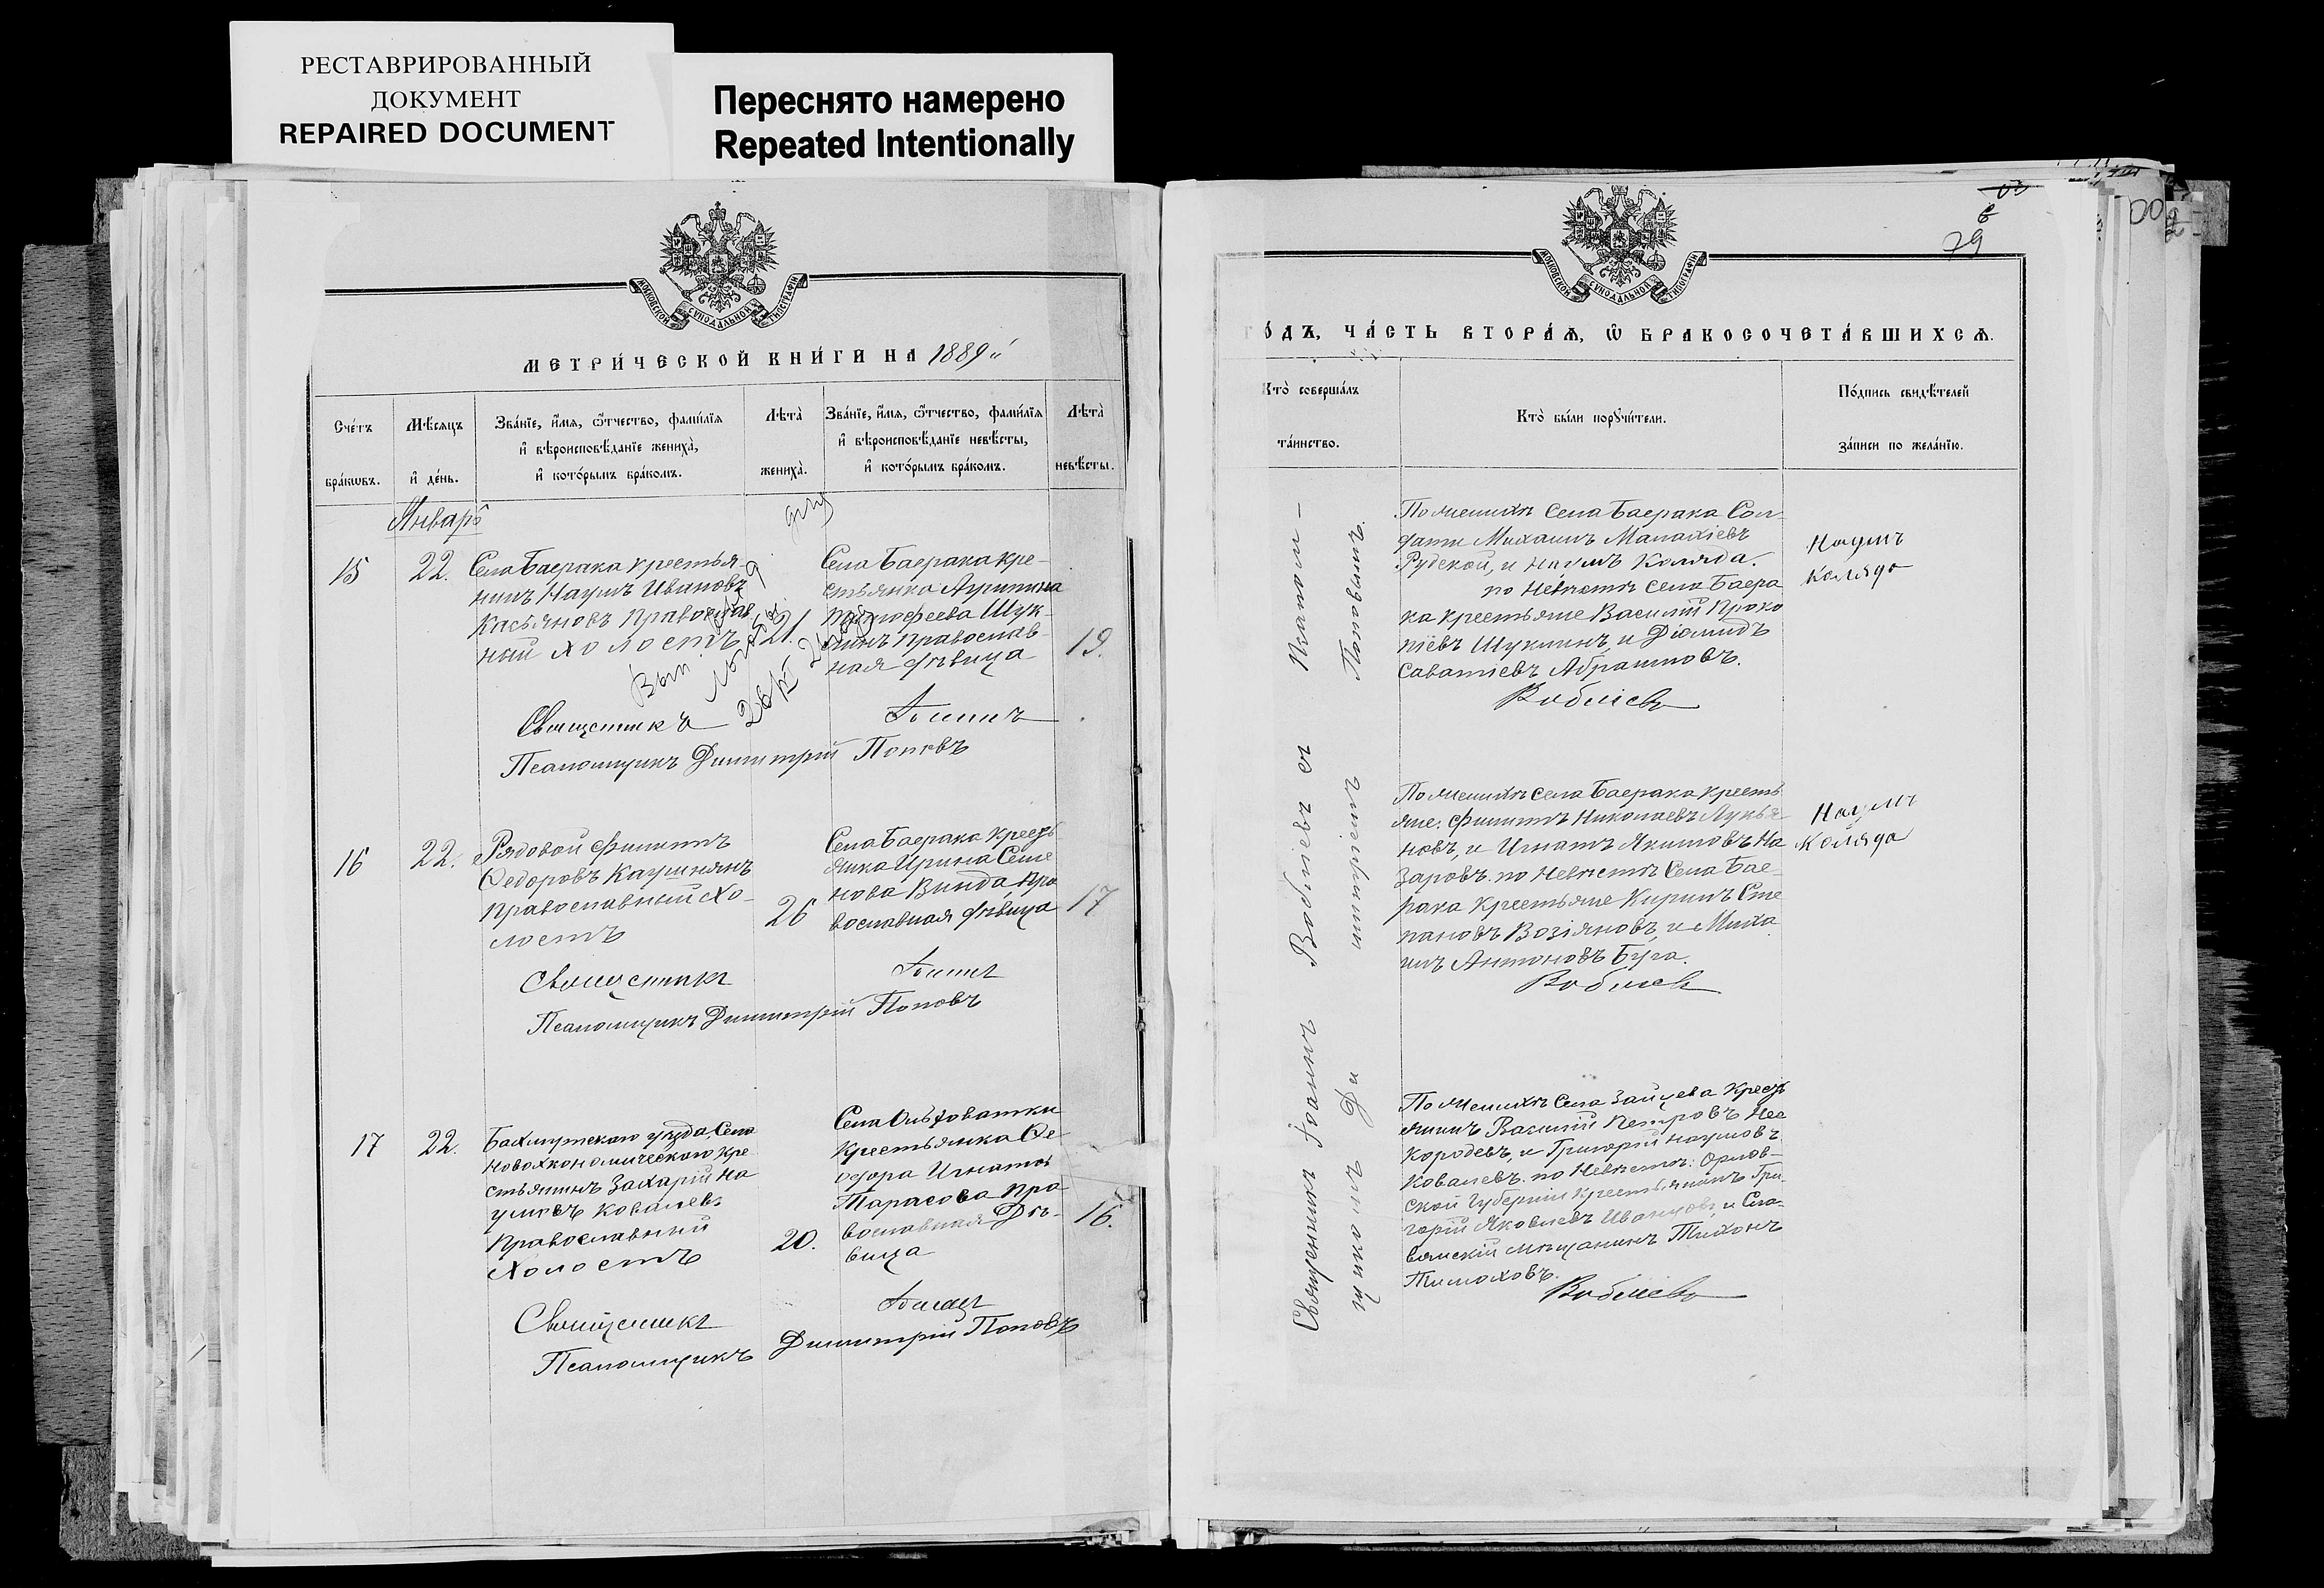 РЕСТАВРИРОВАННЫЙ
ДОКУМЕНТ
REPAIRED DOCUMENT
Переснято намерено
Repeated Intentionally
МОСКОВСКОЙ СѴНОДАЛЬНОЙ ТИПОГРАФІИ
МЕТРИ́ЧЕСКОЙ КНИ́ГИ НА 1889
Сче́тъ
бра́кѡвъ.
Мѣ́сяцъ
и҆ де́нь.
Зва́нїе, и҆́мѧ, ѻ҆́тчество, фами́лїѧ
и҆ вѣроисповѣ́данїе жениха̀,
и҆ кото́рымъ бра́комъ.
Лѣта̀
жениха̀.
Зва́нїе, и҆́мѧ, ѻ҆́тчество, фами́лїѧ
и҆ вѣроисповѣ́данїе невѣ́сты,
и҆ кото́рымъ бра́комъ.
Лѣта̀
невѣ́сты.
Январь
15
22.
Села Баерака крестья
нинъ Наумъ Ивановъ
Касьяновъ Православ
ный холостъ
21.
Села Баерака кре-
стьянка Агрипина
Щук-
Православ-
ная дѣвица
19.
Священникъ
Псаломщикъ Димитрій Поповъ
16
22.
Рядовой Филиппъ
Ѳедоровъ
Православный хо-
лостъ
26
Села Баерака Кресть
янка Ирина Семе
нова Винда Пра
вославная дѣвица
17
Священникъ
Псаломщикъ Димитрій Поповъ
17
22.
Бахмутскаго уѣзда, Села
Новоэкономическаго кре
стьянинъ Захарій На
умовъ Ковалевъ
Православный
Холостъ
20.
Села Ольховатки
Крестьянка Ѳе
одора Игнатова
Тарасова Пра
вославная Дѣ-
вица
16.
Священникъ
Псаломщикъ Димитрій Поповъ
79
МОСКОВСКОЙ СѴНОДАЛЬНОЙ ТИПОГРАФІИ
ГО́ДЪ, ЧА́СТЬ ВТОРА́Ѧ, Ѽ БРАКОСОЧЕТА́ВШИХСѦ.
Кто̀ соверша́лъ
та́инство.
Кто̀ бы́ли порꙋчи́тели.
По́дпись свидѣ́телей
за́писи по жела́нїю.
Священникъ Іоаннъ съ Псалом-
щикомъ Димитріемъ Поповымъ.
По женихѣ Села Баерака Сол
даты Михаилъ Малахіевъ
Рудской, и Наумъ Коляда.
по Невѣстѣ Села Баера
ка крестьяне Василій Проко
піевъ Щукинъ, и Діомидъ
Саватіевъ Абрамовъ.
Наумъ
Коляда
По женихѣ Села Баерака кресть
яне. Филиппъ Николаевъ Лукья
новъ, и Игнатъ Якимовъ На
заровъ. по Невѣстѣ Села Бае-
рака крестьяне Кирилъ Сте
пановъ Возіяновъ, и Миха
илъ Антоновъ Буга.
Наумъ
Коляда
По женихѣ Села Зайцева Кресть
янинъ Василій Петровъ Нес
кородевъ, и Григорій Наумовъ
Ковалевъ. по Невѣстѣ: Орлов-
ской Губерніи крестьянинъ Гри-
горій Яковлевъ Иванцовъ, и Сла-
вянскій мѣщанинъ Тихонъ
Тимоховъ.